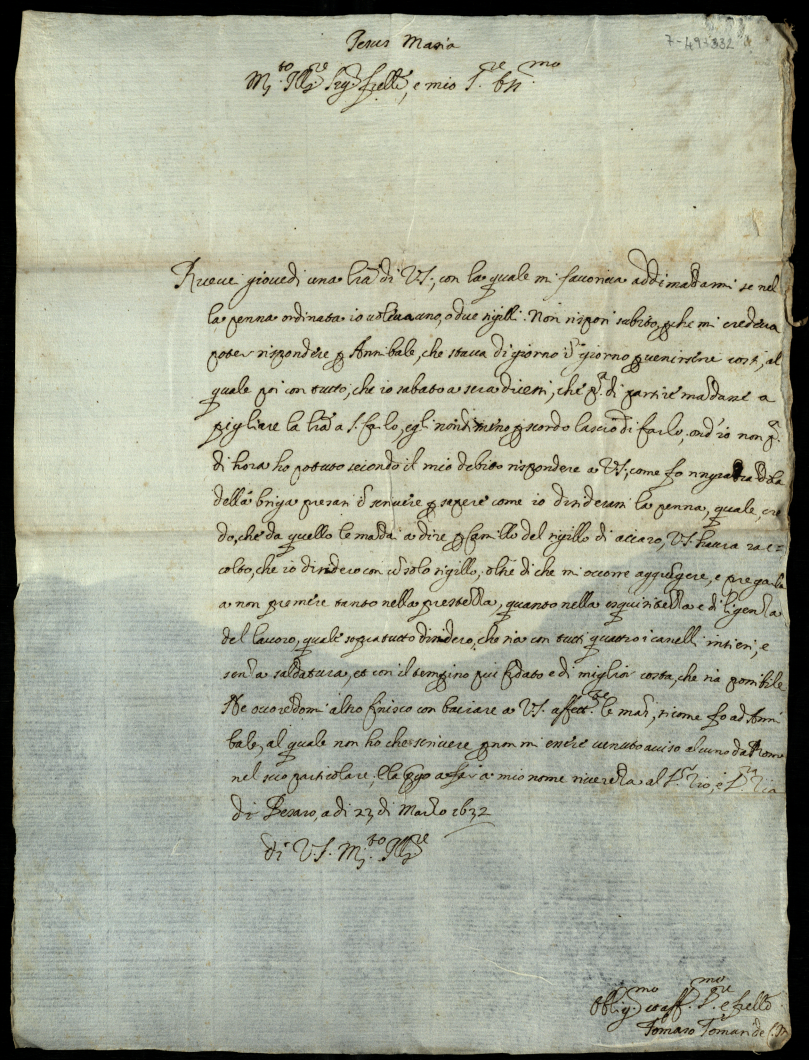 7-49-332
Jesus Maria
M.to Ill.re Sig.r fr̃ello, e mio S.re
Riceuei giouedi una lr̃a di VS, con la quale mi fauoriua addimandarmi se nel
la penna ordinata io uoleua uno, o due sigilli. Non risposi subito, ꝑche mi credeua
poter rispondere ꝑ Annibale, che staua di giorno ĩ giorno ꝑ uenirsene costì, al
quale poi con tutto, che io sabato a sera dicessi, che pª. di partire mandasse a
pigliare la lr̃a a S. Carlo, egli nondimeno ꝑ scordo lasciò di farlo, ond'io non pª.
di hora ho potuto secondo il mio debito rispondere a VS, come fo
della briga presasi ĩ scriuere ꝑ sapere come io desiderassi la penna, quale, cre
do, che da quello le mandai a dire ꝑ Camillo del sigillo di acciaro, VS haurà rac=
colto, che io desidero con ũ solo sigillo, oltre di che mi occorre aggiungere, e pregarla
a non premere tanto nella prestezza, quanto nella esquisitezza e diligenza
del lauoro, quale sopra tutto desidero, che sia con tutti quattro i canelli intieri, e
senza saldatura, et con il tempino più fidato e di miglior costa, che sia possibile
Ne occorrẽdomi altro finisco con baciare a VS. affett.te le mani, si come fo ad Anni
bale, al quale non ho che scriuere ꝑ non mi essere uenuto auiso alcuno da Roma
nel suo particolare. a mio nome riuerenza al S.r Zio, e S.ra Zia
di Pesaro, a di 23 di Marzo 1632
di VS. M.to Ill.re
Oblig.mo et aff.mo S.re e fr̃ello
Tomaso Tomasi